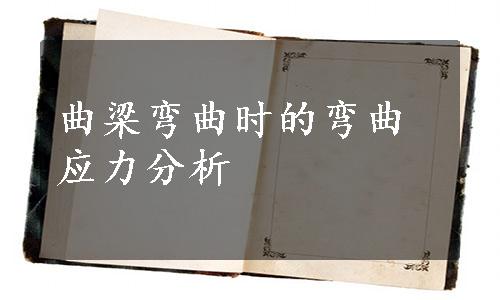 曲梁弯曲时的弯曲
应力分析